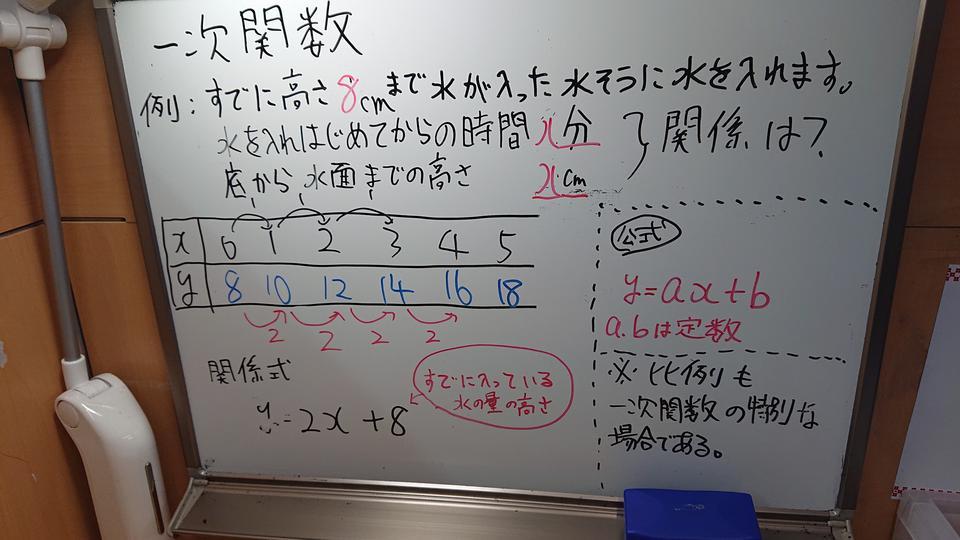 一次関数
例：すでに高さ8cmまで水が入った水そうに水を入れます。
水を入れはじめてからの時間 x分
底から水面までの高さ xcm
関係は？
x 0 1 2 3 4 5
y 8 10 12 14 16 18
2 2 2 2
関係式
y=2x+8
すでに入っている
水の量の高さ
公式
y=ax+b
a.bは定数
※比例も
一次関数の特別な
場合である。